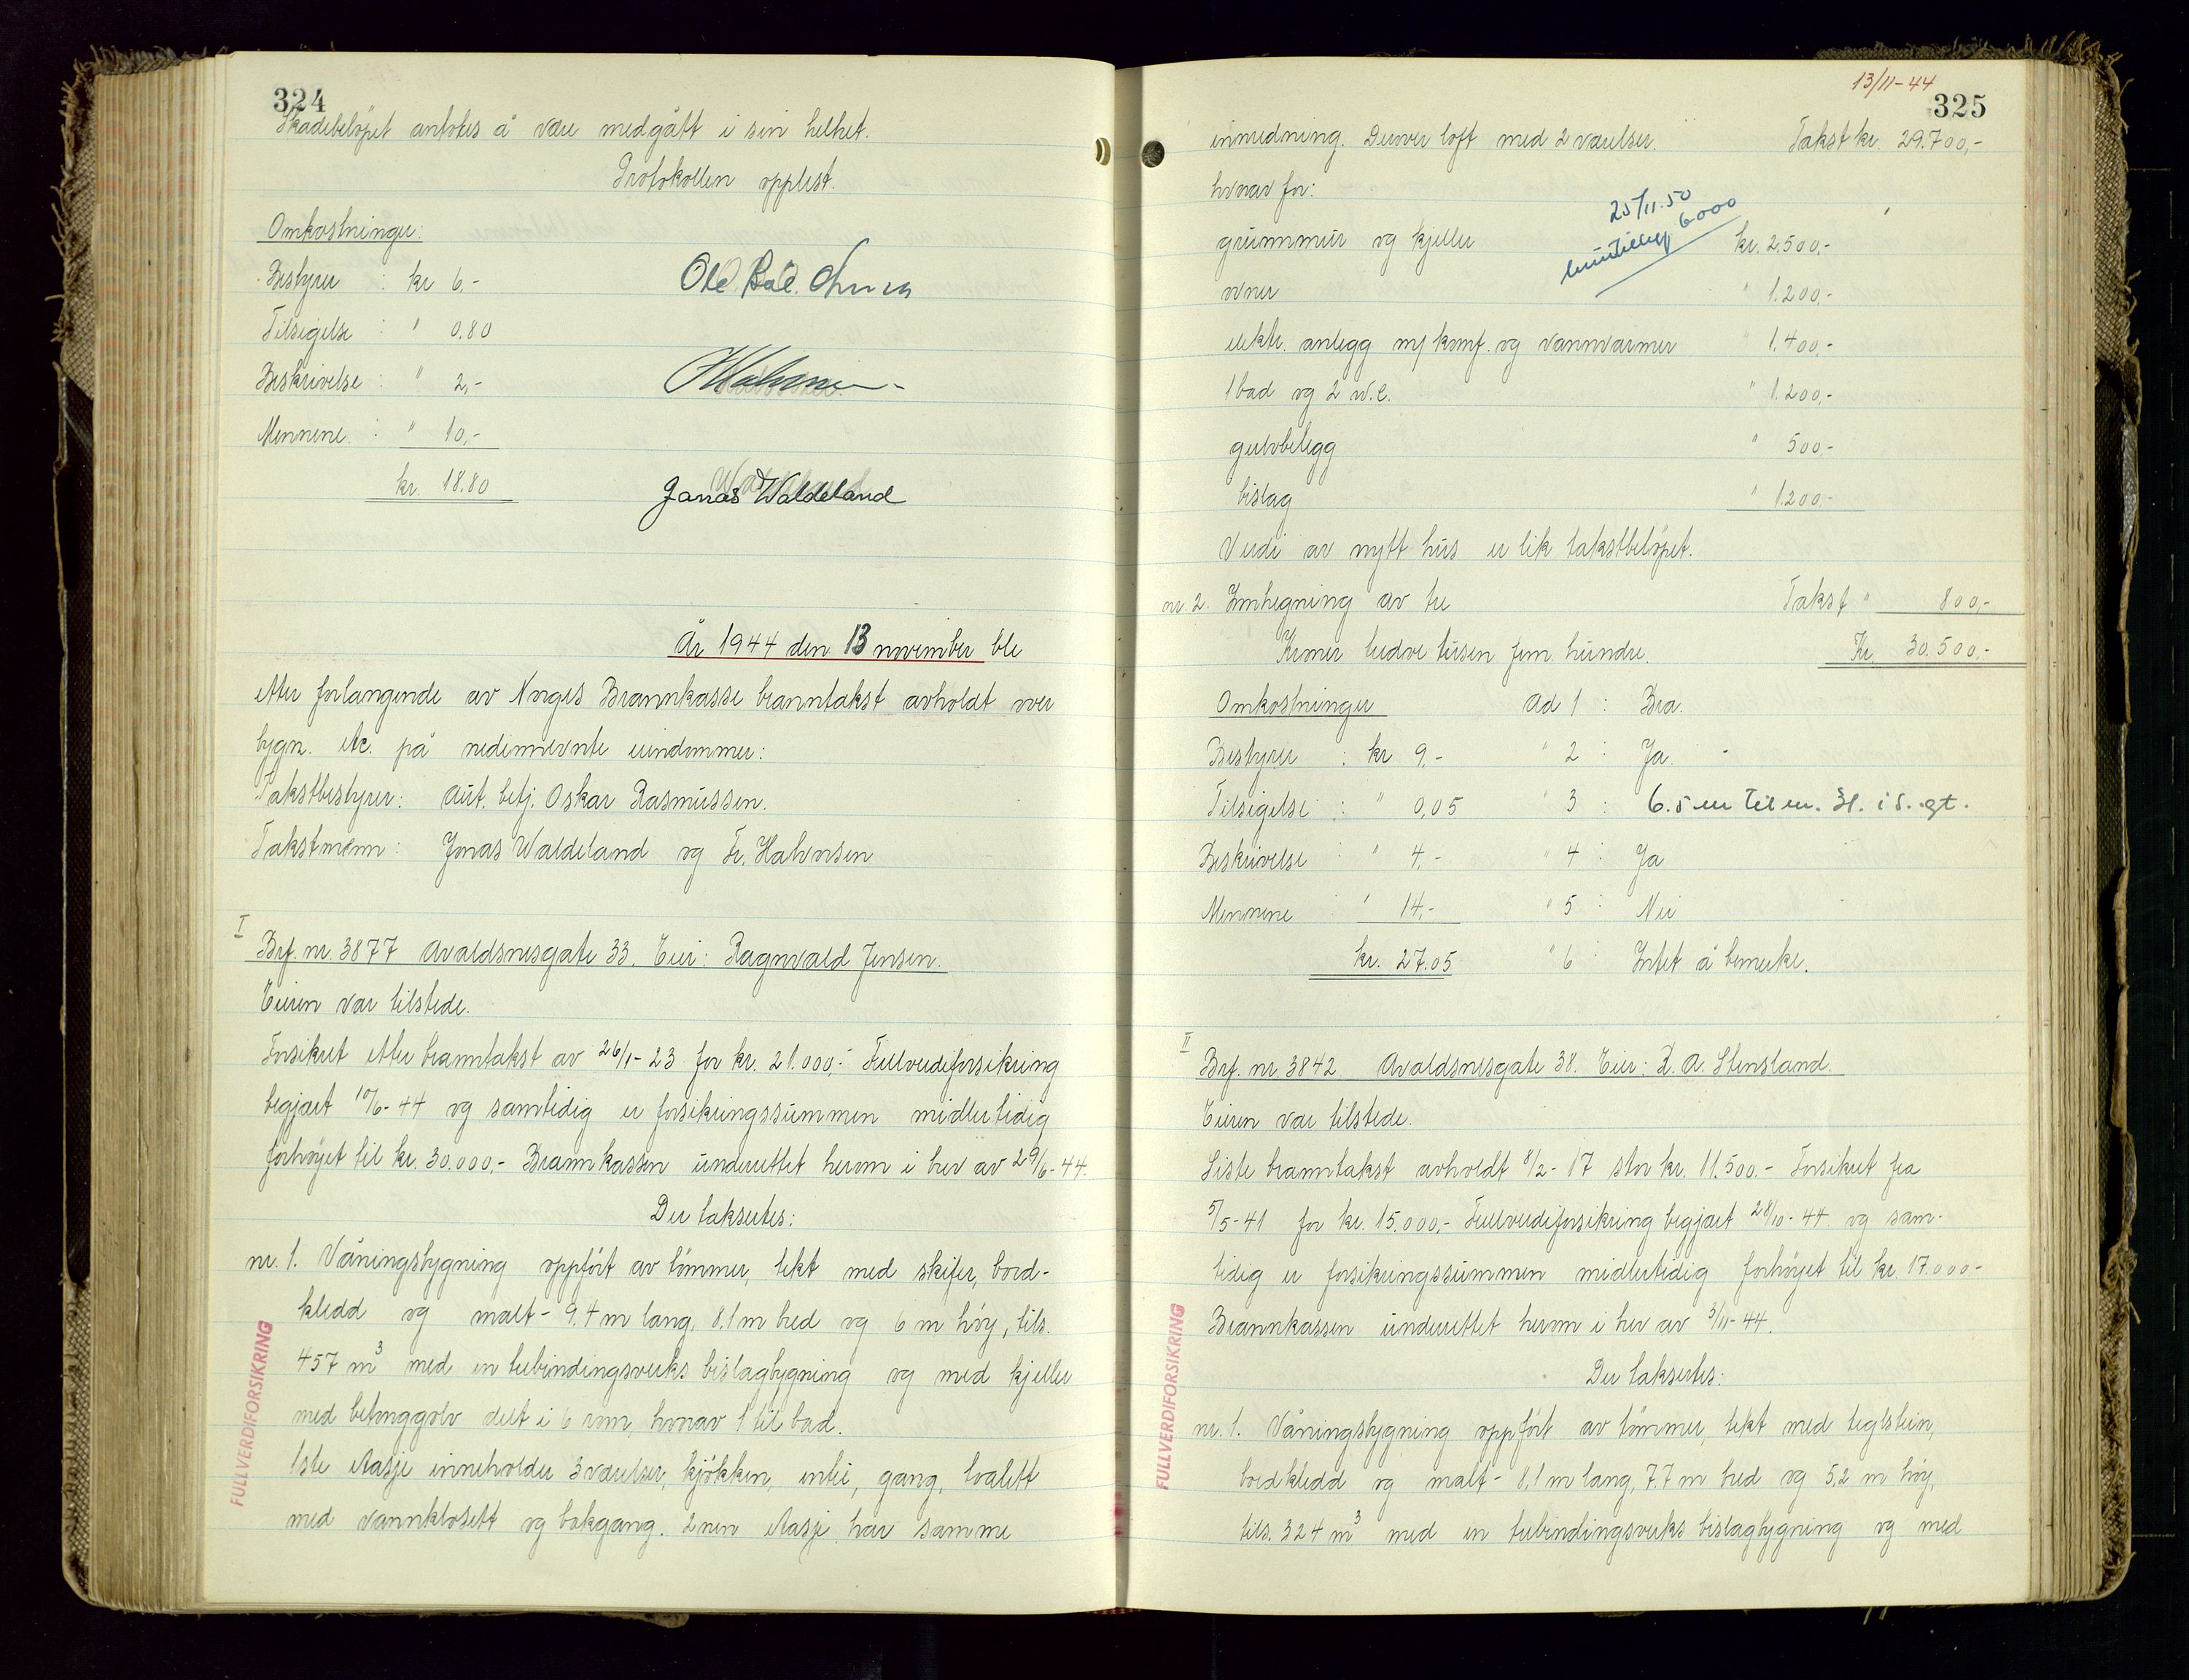 324
Skadebeløpet antokes å være medgått i sin helhet.
Protokollen opplest.
Omkostninger:
Bestyrer : kr 6,-
Tilsigelse : " 0.80
Beskrivelse : " 2,-
Mennene : " 10,-
kr. 18.80
Jonas Waldeland
År 1944 den 13 november ble
etter forlangende av Norges Brannkasse branntakst avholdt over
bygn. etc. på nedennevnte eiendommer:
Takstbestyrer: Aut. betj. Oskar Rasmussen.
Takstmenn: Jonas Waldeland og Fr. Halvorsen
I
Brf. nr. 3877 Avaldsnesgate 33. Eier: Ragnvald Jensen.
Eieren var tilstede.
Forsikret etter branntakst av 26/1-23 for kr. 21.000,- Fullverdiforsikring
begjært 10/6-44 og samtidig er forsikringssummen midlertidig
forhøyet til kr. 30.000,- Brannkassen underrettet herom i brev av 29/6-44.
Der taksertes:
nr. 1. Våningsbygning oppført av tømmer, tekt med skifer, bord-
kledd og malt - 9.4 m lang, 8.1 m bred og 6 m høy, tils.
457 m³ med en utbindingsverks bislagbygning og med kjeller
med betonggolv delt i 6 rom, hvorav 1 til bad.
1ste etasje inneholder 3 værelser, kjøkken, entré, gang, toalett
med vannklosett og bakgang. 2nen etasje har samme
FULLVERDIFORSIKRING
13/11-44
325
innredning. Derover loft med 2 værelser. Takst kr. 29.700,-
hvorav for:
25/11.50
6000
grunnmur og kjeller kr. 2.500,-
ovner " 1.200,-
elektr. anlegg m/ komf. og vannvarmer " 1.400,-
1 bad og 2 w.c. " 1.200,-
gulvbelegg " 500,-
bislag " 1200,-
Verdi av nytt hus er lik takstbeløpet.
nr. 2. Innhegning av tre Takst " 800,-
Kroner tredve tusen fem hundre. Kr. 30.500,-
Omkostninger Ad 1 : Bra.
Bestyrer : kr 9,- " 2 : Ja.
Tilsigelse : " 0,05 " 3 : 6.5 m til nr. 31. i s. gt.
Beskrivelse : " 4,- " 4 : Ja
Mennene : " 14,- " 5 : Nei
kr. 27.05 " 6 : Intet å bemerke.
II
Brf. nr. 3842 Avaldsnesgate 38. Eier: L. A. Stensland.
Eieren var tilstede.
Siste branntakst avholdt 8/2-17 stor kr. 11.500.- Forsikret fra
5/5-41 for kr. 15.000,- Fullverdiforsikring begjært 28/10-44 og sam-
tidig er forsikringssummen midlertidig forhøyet til kr. 17.000-
Brannkassen underrettet herom i brev av 3/11-44.
Der taksertes:
nr. 1. Våningsbygning oppført av tømmer, tekt med teglstein,
bordkledd og malt - 8,1 m lang, 7.7 m bred og 5,2 m høy,
tils. 324 m³ med en utbindingsverks bislagbygning og med
FULLVERDIFORSIKRING